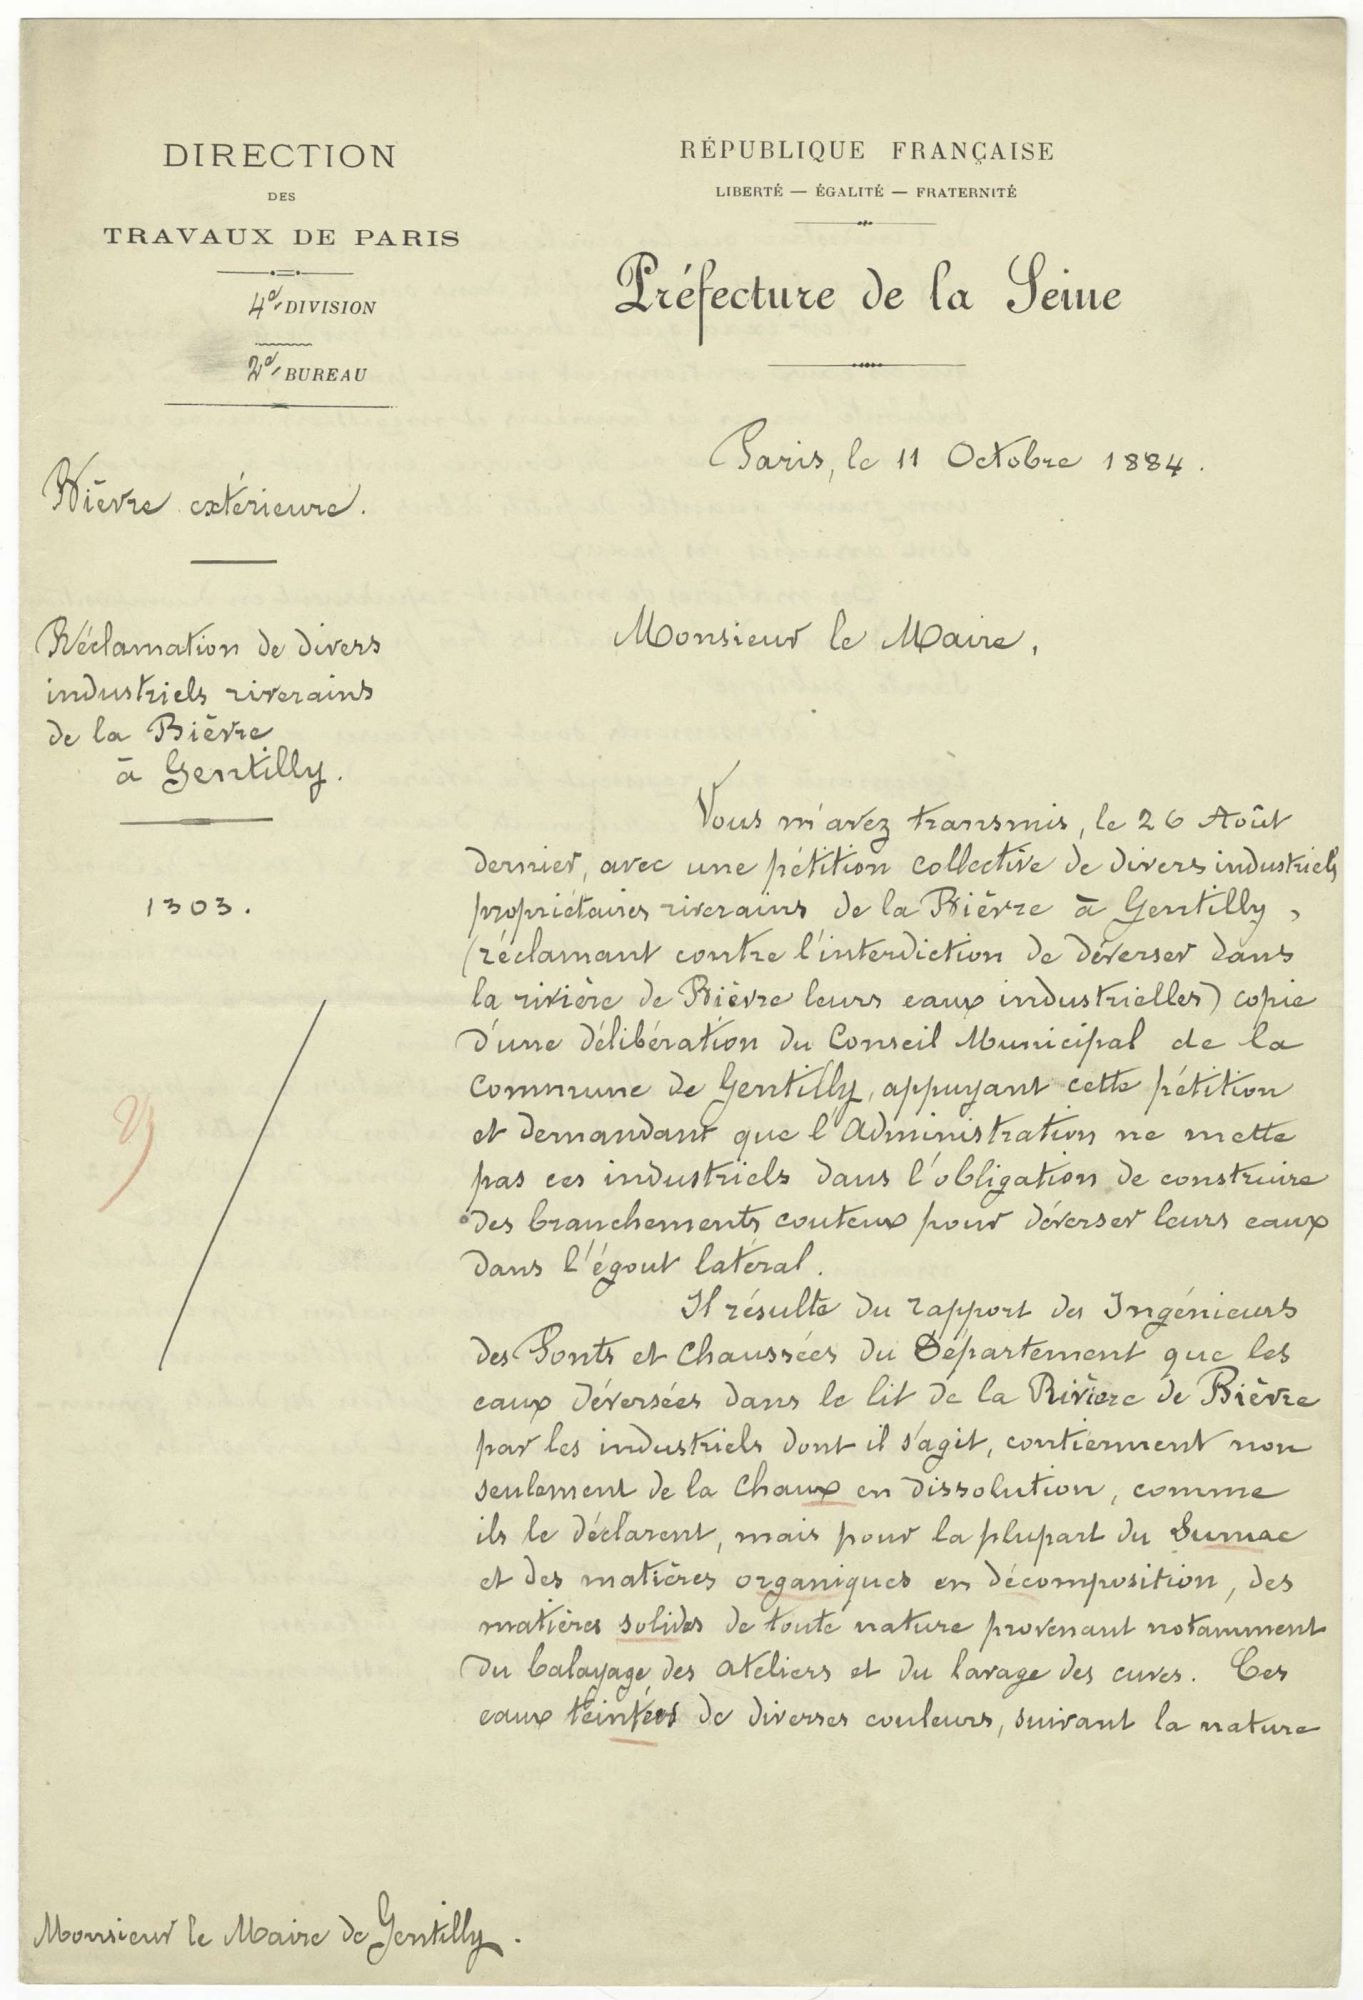 DIRECTION
DES
TRAVAUX DE PARIS
4e DIVISION
2e BUREAU
RÉPUBLIQUE FRANÇAISE
LIBERTÉ — ÉGALITÉ — FRATERNITÉ
Préfecture de la Seine
Paris, le 11 Octobre 1884.
Bièvre extérieure.
Réclamation de divers
industriels riverains
de la Bièvre
à Gentilly.
1303.
Monsieur le Maire,
Vous m'avez transmis, le 26 Août
dernier, avec une pétition collective de divers industriels
propriétaires riverains de la Bièvre à Gentilly,
(réclamant contre l'interdiction de déverser dans
la rivière de Bièvre leurs eaux industrielles) copie
d'une délibération du Conseil Municipal de la
Commune de Gentilly, appuyant cette pétition
et demandant que l'Administration ne mette
pas ces industriels dans l'obligation de construire
des branchements couteux pour déverser leurs eaux
dans l'égout latéral.
Il résulte du rapport des Ingénieurs
des Ponts et Chaussées du Département que les
eaux déversées dans le lit de la Rivière de Bièvre
par les industriels dont il s'agit, contiennent non
seulement de la Chaux en dissolution, comme
ils le déclarent, mais pour la plupart du Sumac
et des matières organiques en décomposition, des
matières solides de toute nature provenant notamment
du balayage des ateliers et du lavage des cuves. Ces
eaux teintées de diverses couleurs, suivant la nature
Monsieur le Maire de Gentilly.